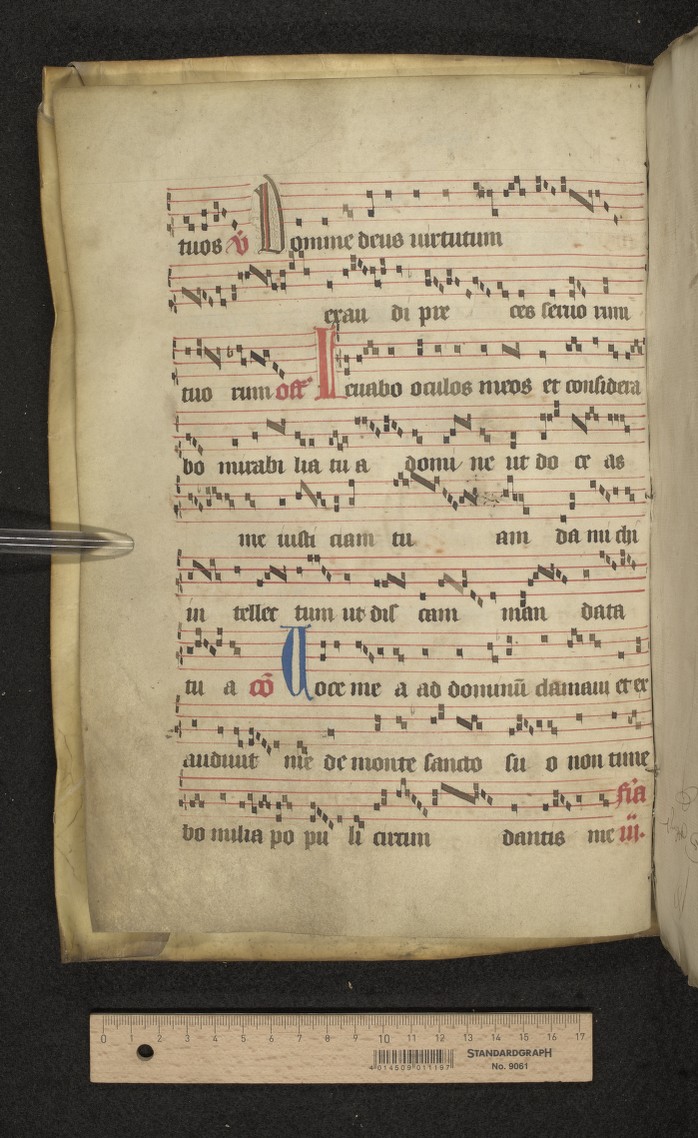 tuos v̄ Domine deus uirtutum
exau di pre ces seruo rum
tuo rum off Leuabo oculos meos et considera
bo mirabi lia tu a domi ne ut do ce as
me iusti ciam tu am da mi chi
in tellec tum ut dis cam man data
tu a cō Uoce me a ad dominū clamaui et ex
audiuit me de monte sancto su o non time
bo milia po pu li circum dantis me fia
iii.
0 1 2 3 4 5 6 7 8 9 10 11 12 13 14 15 16 17
4 014509 011197
STANDARDGRAPH
No. 9061